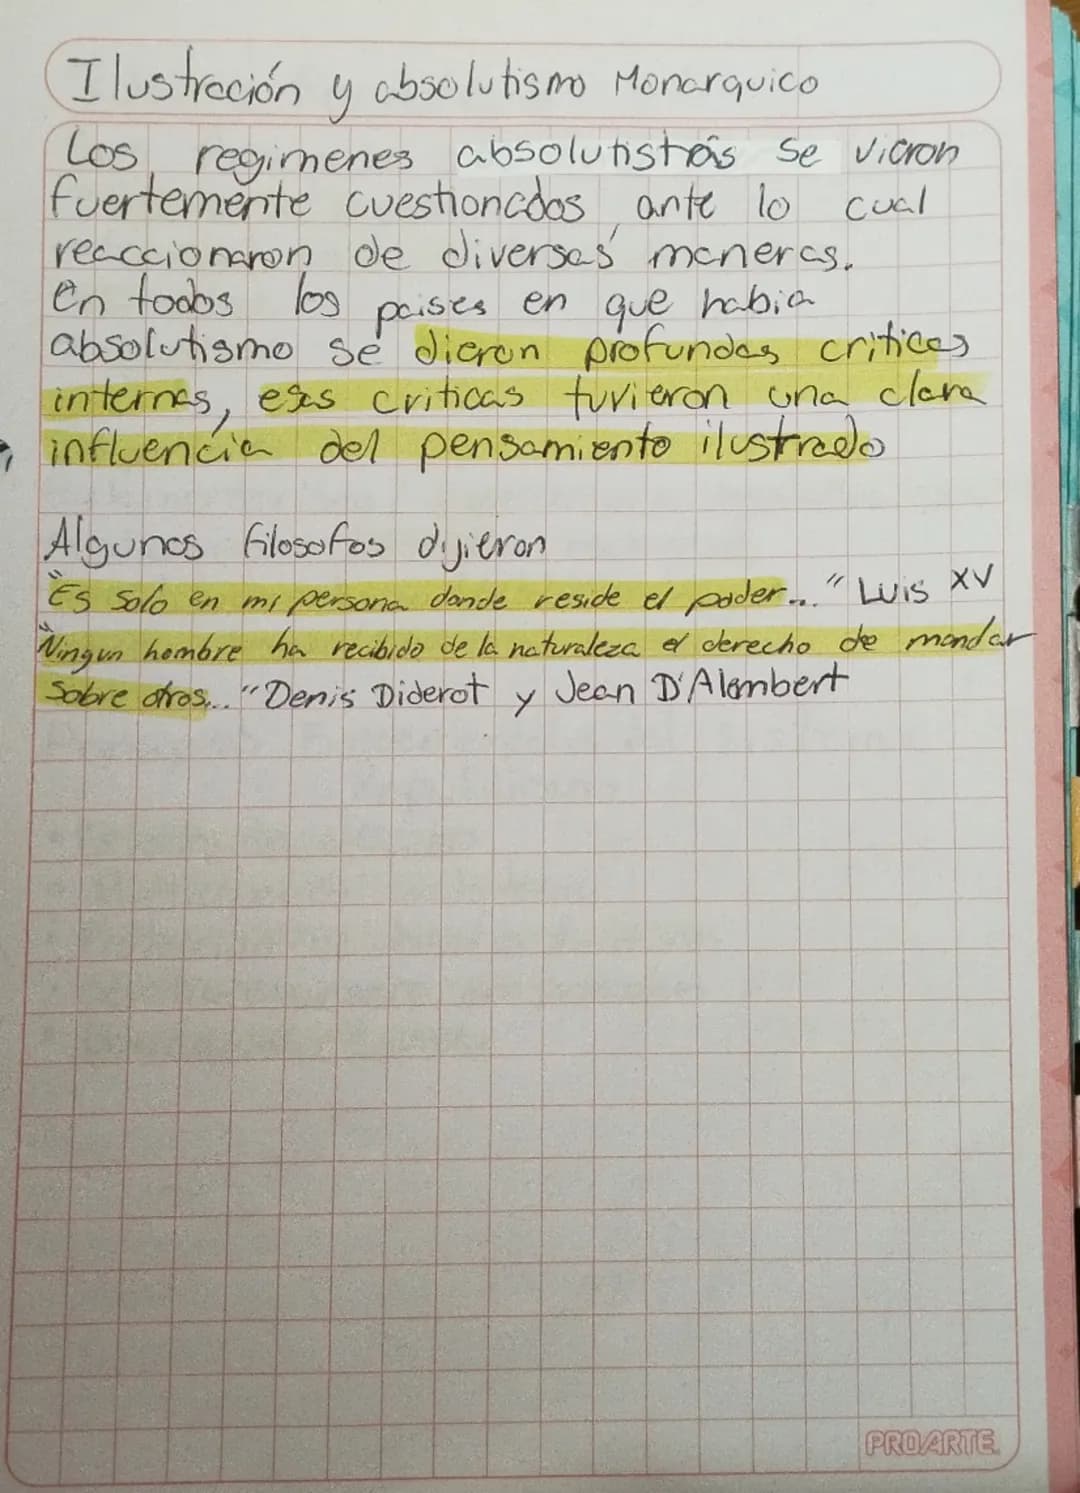 Ilustración y absolutismo Monarquico
Los regimenes absolutistas se vieron
fuertemente cuestionados ante lo cual
reaccionaron de diversas maneras.
en todos los paises en que habia
absolutismo se dieron profundas criticas
internas, esas criticas tuvieron una clara
influencia del pensamiento ilustrado
Algunos filosofos dijieron
"Es solo en mi persona donde reside el poder..." Luis XV
"Ningun hombre ha recibido de la naturaleza el derecho de mandar
sobre otros..." Denis Diderot y Jean D'Alembert
PROARTE